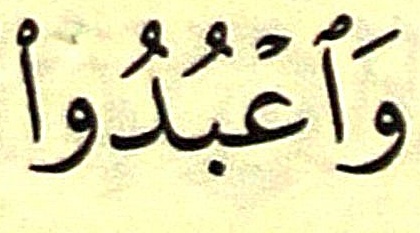 وَٱعْبُدُوا۟